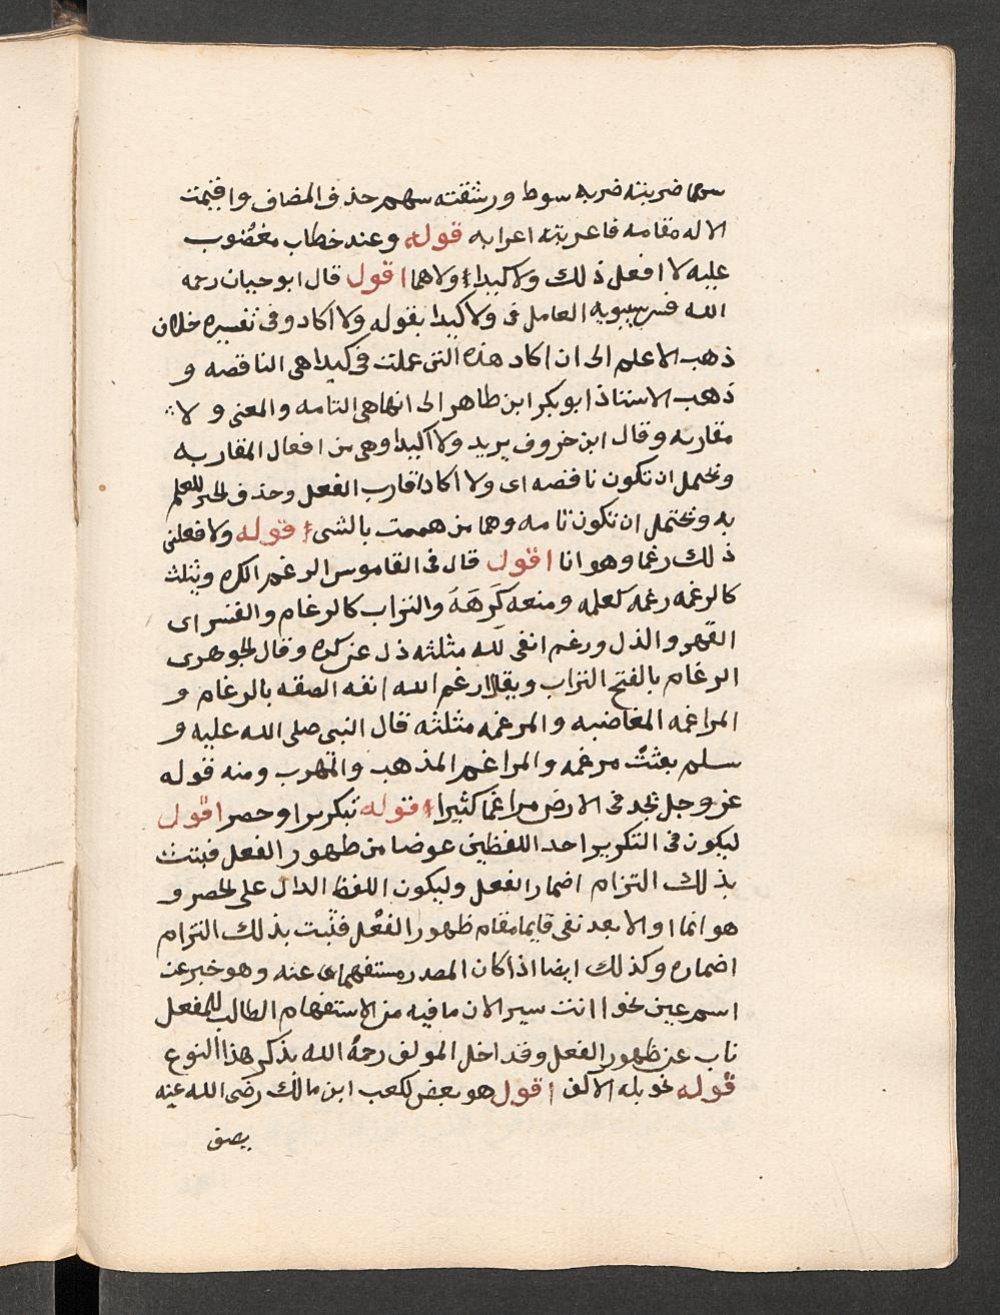 سهما ضربته ضربة سوط ورشقته سهم حذف المضاف واقيمت
الاله مقامه فاعربته اعرابه قوله وعند خطاب مغضوب
عليه لا افعل ذلك ولا كيدا ولا هما اقول قال ابو حيان رحمه
الله فسر سيبويه العامل في ولا كيدا بقوله ولا اكاد وفي تفسيره خلاف
ذهب الاعلم الى ان اكاد هذه التي عملت في كيدا هي الناقصه و
ذهب الاستاذ ابو بكر ابن طاهر الى انها هي التامه والمعنى و لا
مقاربه وقال ابن خروف يريد ولا اكيدا وهي من افعال المقاربه
وتحتمل ان تكون ناقصه اى ولا اكاد اقارب الفعل وحذف الخبر للعلم
به وتحتمل ان تكون تامه وهما من هممت بالشيء قوله ولافعلن
ذلك رغما وهوانا اقول قال في القاموس الرغم الكره ويثلث
كالرغمه رغمه كعلمه ومنعه كَرِهَهَ والتراب كالرغام والقسر اى
القهر والذل ورغم انفى لله مثلثه ذل عن كره وقال الجوهرى
الرغام بالفتح التراب ويقال ارغم الله انفه الصقه بالرغام و
المراغمه المغاضبه والمرغمه مثلثه قال النبى صلى الله عليه و
سلم بعثت مرغمه والمراغم المذهب والمهرب ومنه قوله
عز وجل يجد في الارض مراغما كثيرا قوله تكريرا وحصرا اقول
ليكون في التكرير احد اللفظين عوضا من ظهور الفعل فيثبت
بذلك التزام اضمار الفعل وليكون اللفظ الدال على الحصر و
هو انما او الا بعد نفى قايما مقام ظهور الفعل فثبت بذلك التزام
اضماره وكذلك ايضا اذا كان المصدر مستفهما عنه وهو خبر عن
اسم عين نحو اانت سيرا لان ما فيه من الاستفهام الطالب للفعل
ناب عن ظهور الفعل وقد اخل المولف رحمه الله بذكر هذا النوع
قوله نحو بله الاكف اقول هو بعض لكعب ابن مالك رضى الله عنه
يصف